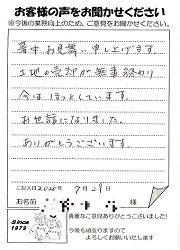 お客様の声をお聞かせください
※今後の業務向上のため、ご意見をお聞かせください。
暑中お見舞い申し上げます。
土地の売却が無事終わり
今はほっとしています。
お世話になりました。
ありがとうございます。
ご記入日2020年 7月29日
お名前
Since
1979
貴重なご意見ありがとうございました!
今後も頑張りますので
よろしくお願いいたします